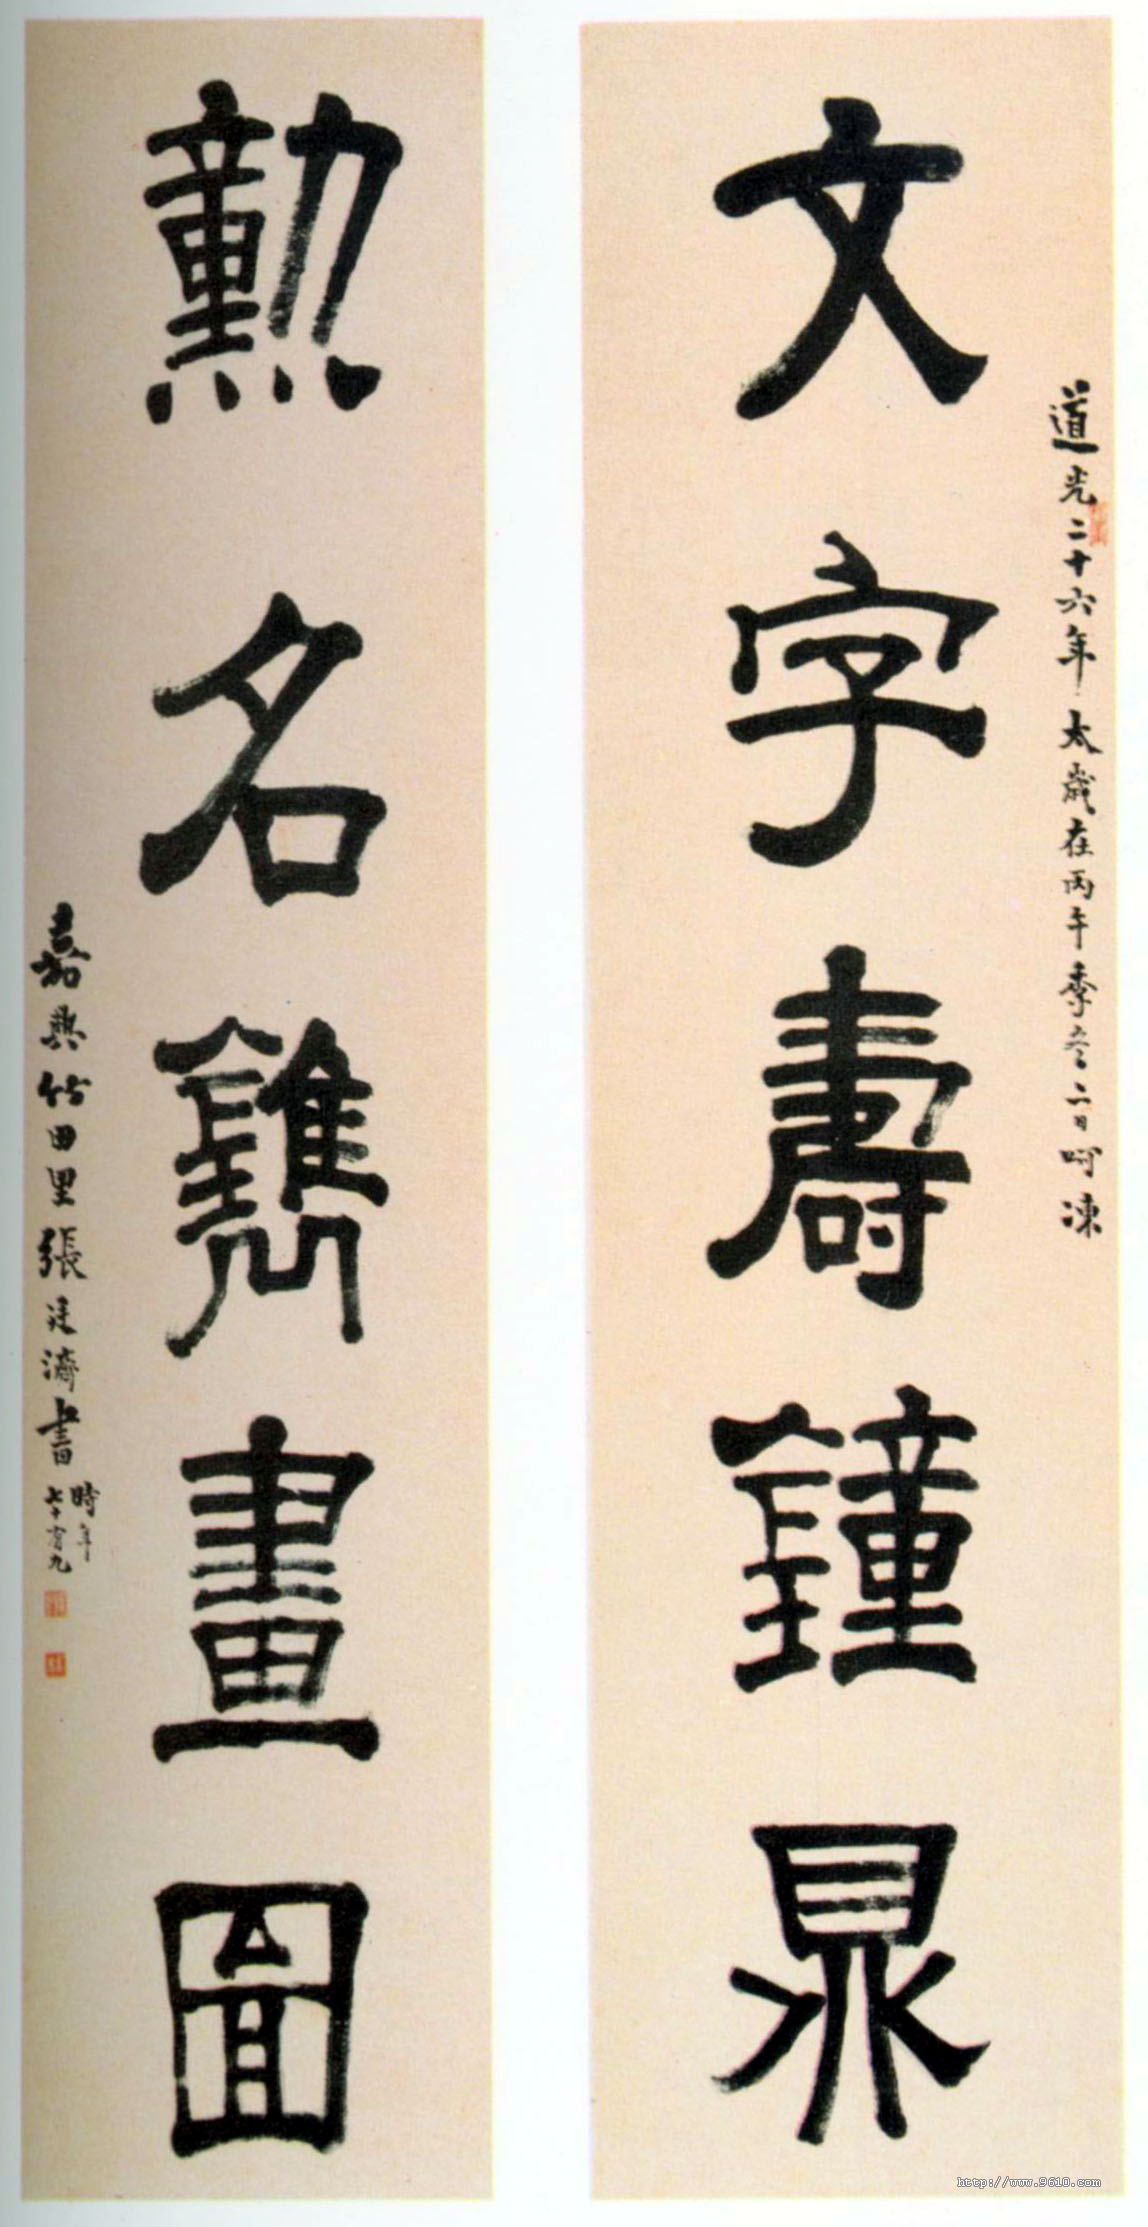 道光二十六年太歲在丙午季冬二日呵凍
文字壽鐘鼎
勳名鐫畫圖
嘉興竹田里張廷濟書
時年
七十有九
http://www.9610.com